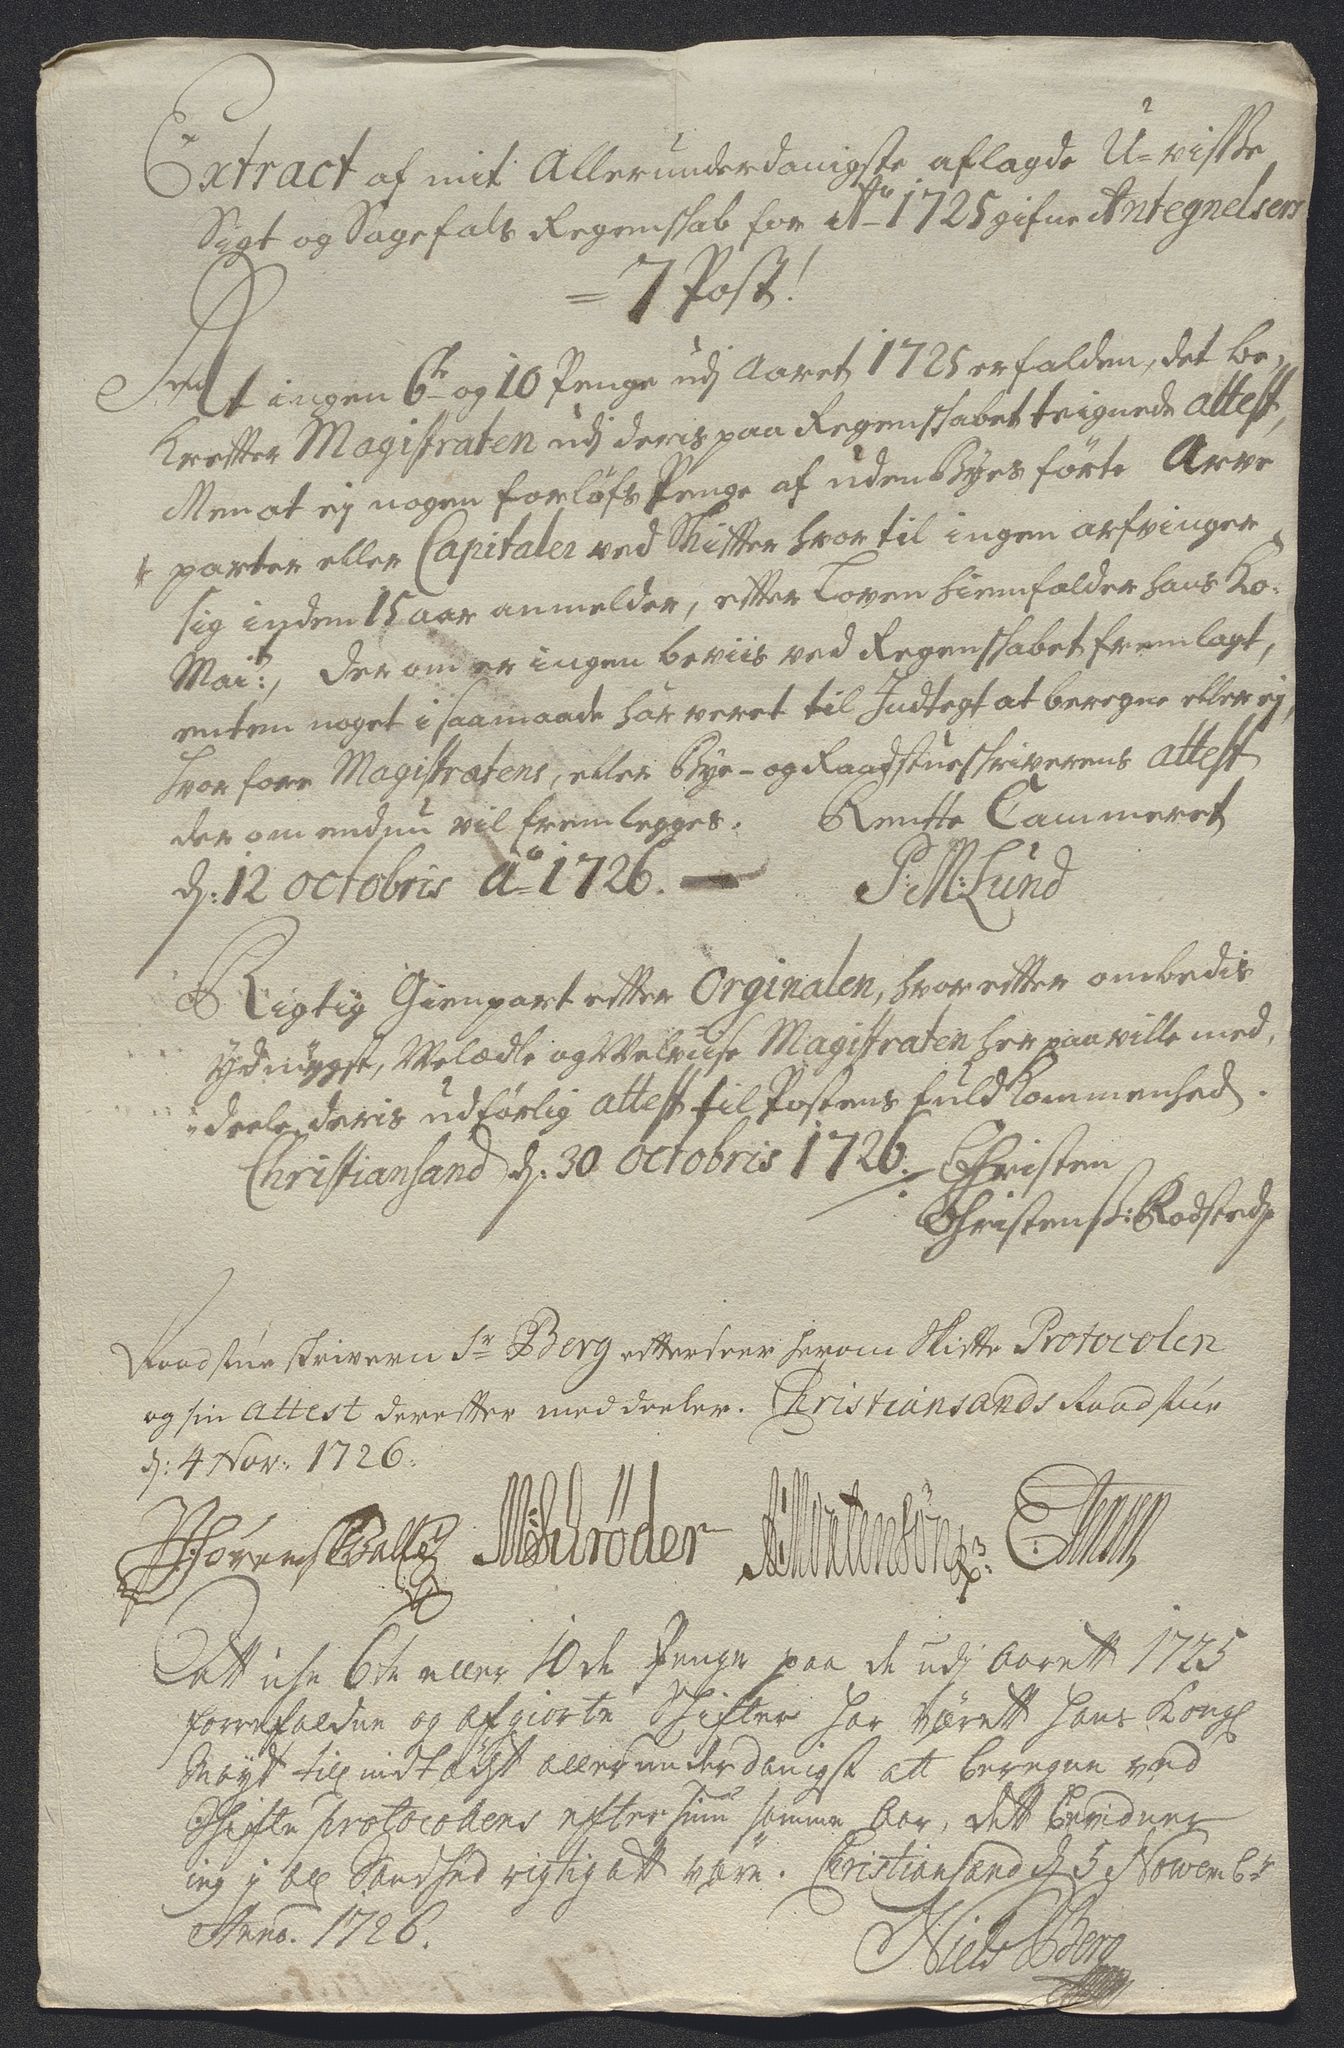 Extract af mit Allerunderdanigste aflagde U=visse
Sigt og Sagefals Regenskab for Ao 1725 gifne Antegnelser
= 7 Post!
At ingen 6te og 10 Penge udj Aaret 1725 erfalden, det be-
krefter Magistraten udj deris paa Regenskabet teignede attest,
Men at ej nogen forløfs Penge af udenByes førte Arve
parter eller Capitaler ved Skifter hvortil ingen arfvinger
sig inden 15 aar anmelder, efter Loven hiemfalder hans Ko:
Mait:, derom er ingen beviis ved Regenskabet fremlagt,
enten noget i saamaade har veret til Indtegt at beregne eller ej,
hvorfore Magistratens, eller Bye- og Raadstueskriverens attest
derom endnu vil fremlegges. Rente Cammeret
d: 12 octobris Ao 1726. P: M: Lund
Rigtig Gienpart efter Orginalen, hvorefter ombedis
ydmygst, Velædle og Velviise Magistraten her paa ville med-
deele deris udførlig attest til Postens fuldkommenhed.
Christiansand d: 30 octobris 1726. Christen
Christens: Rodsted
Raadstueskriveren Sr Berg efterseer herom Skifte Protocolen
og sin Attest derefter meddeeler. Christiansands Raadstue
d: 4 Nov: 1726.
MSchrøder AMortensøn
Att iche 6te eller 10de Penge paa de udj Aarett 1725
forrefaldne og afgiorte Skifter har værett hans Kongl
Mayst till indtægt allerunderdanigst att beregne ved
Skifte protocollens eftersiun samme Aar, dett bevidner
ieg j all Sandhed rigtig att være. Christiansand d 5 Novembr
Anno. 1726.
Niels Berg